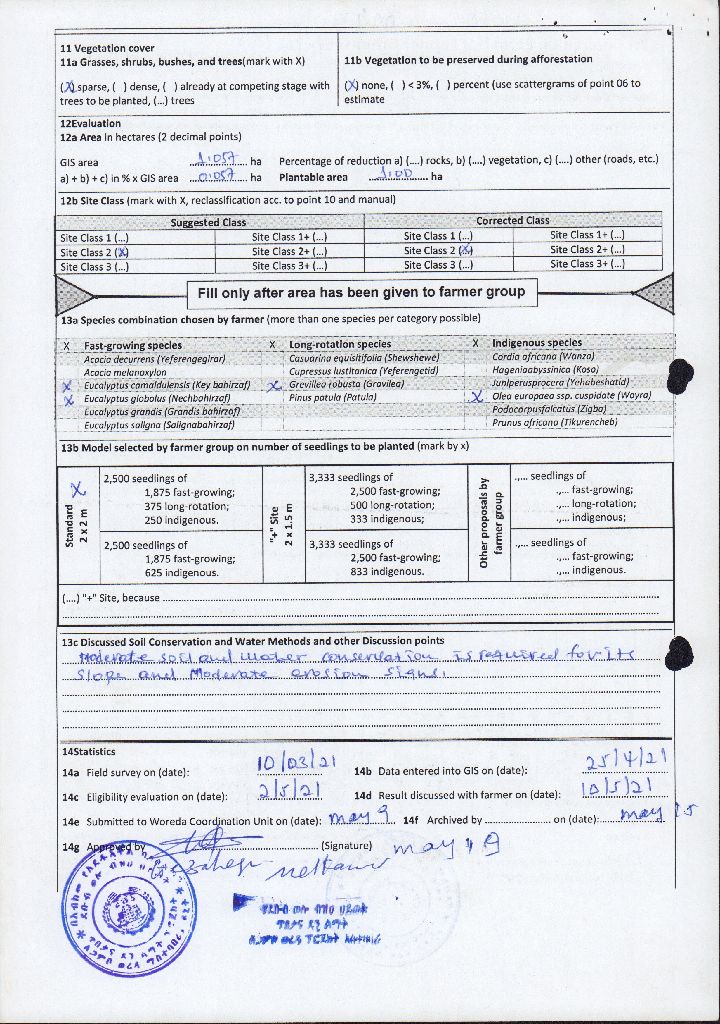 11 Vegetation cover
11a Grasses, shrubs, bushes, and trees(mark with X)
(X) sparse, ( ) dense, ( ) already at competing stage with
trees to be planted, (...) trees
11b Vegetation to be preserved during afforestation
(X) none, ( ) < 3%, ( ) percent (use scattergrams of point 06 to
estimate
12Evaluation
12a Area in hectares (2 decimal points)
GIS area 1.057 ha Percentage of reduction a) (....) rocks, b) (....) vegetation, c) (....) other (roads, etc.)
a) + b) + c) in % x GIS area 0.057 ha Plantable area 1.00 ha
12b Site Class (mark with X, reclassification acc. to point 10 and manual)
Suggested Class Corrected Class
Site Class 1 (...) Site Class 1+ (...) Site Class 1 (...) Site Class 1+ (...)
Site Class 2 (X) Site Class 2+ (...) Site Class 2 (X) Site Class 2+ (...)
Site Class 3 (...) Site Class 3+ (...) Site Class 3 (...) Site Class 3+ (...)
Fill only after area has been given to farmer group
13a Species combination chosen by farmer (more than one species per category possible)
X Fast-growing species X Long-rotation species X Indigenous species
Acacia decurrens (Yeferengegirar) Casuarina equisitifolia (Shewshewe) Cordia africana (Wanza)
Acacia melanoxylon Cupressus lustitanica (Yeferengetid) Hageniaabyssinica (Koso)
X Eucalyptus camaldulensis (Key bahirzaf) X Grevillea robusta (Gravilea) Juniperusprocera (Yehabeshatid)
X Eucalyptus globulus (Nechbahirzaf) Pinus patula (Patula) X Olea europaea ssp. cuspidate (Wayra)
Eucalyptus grandis (Grandis bahirzaf) Podocarpusfalcatus (Zigba)
Eucalyptus saligna (Salignabahirzaf) Prunus africana (Tikurencheb)
13b Model selected by farmer group on number of seedlings to be planted (mark by x)
X
Standard
2 x 2 m
2,500 seedlings of
1,875 fast-growing;
375 long-rotation;
250 indigenous.
2,500 seedlings of
1,875 fast-growing;
625 indigenous.
"+" Site
2 x 1.5 m
3,333 seedlings of
2,500 fast-growing;
500 long-rotation;
333 indigenous;
3,333 seedlings of
2,500 fast-growing;
833 indigenous.
Other proposals by
farmer group
.,... seedlings of
.,... fast-growing;
.,... long-rotation;
.,... indigenous;
.,... seedlings of
.,... fast-growing;
.,... indigenous.
(....) "+" Site, because
13c Discussed Soil Conservation and Water Methods and other Discussion points
Moderate soil and water conservation is required for its
slope and Moderate erosion signs.
14Statistics
14a Field survey on (date): 10/03/21 14b Data entered into GIS on (date): 25/4/21
14c Eligibility evaluation on (date): 2/5/21 14d Result discussed with farmer on (date): 10/5/21
14e Submitted to Woreda Coordination Unit on (date): may 9 14f Archived by on (date): may 15
14g Approved by (Signature) may 19